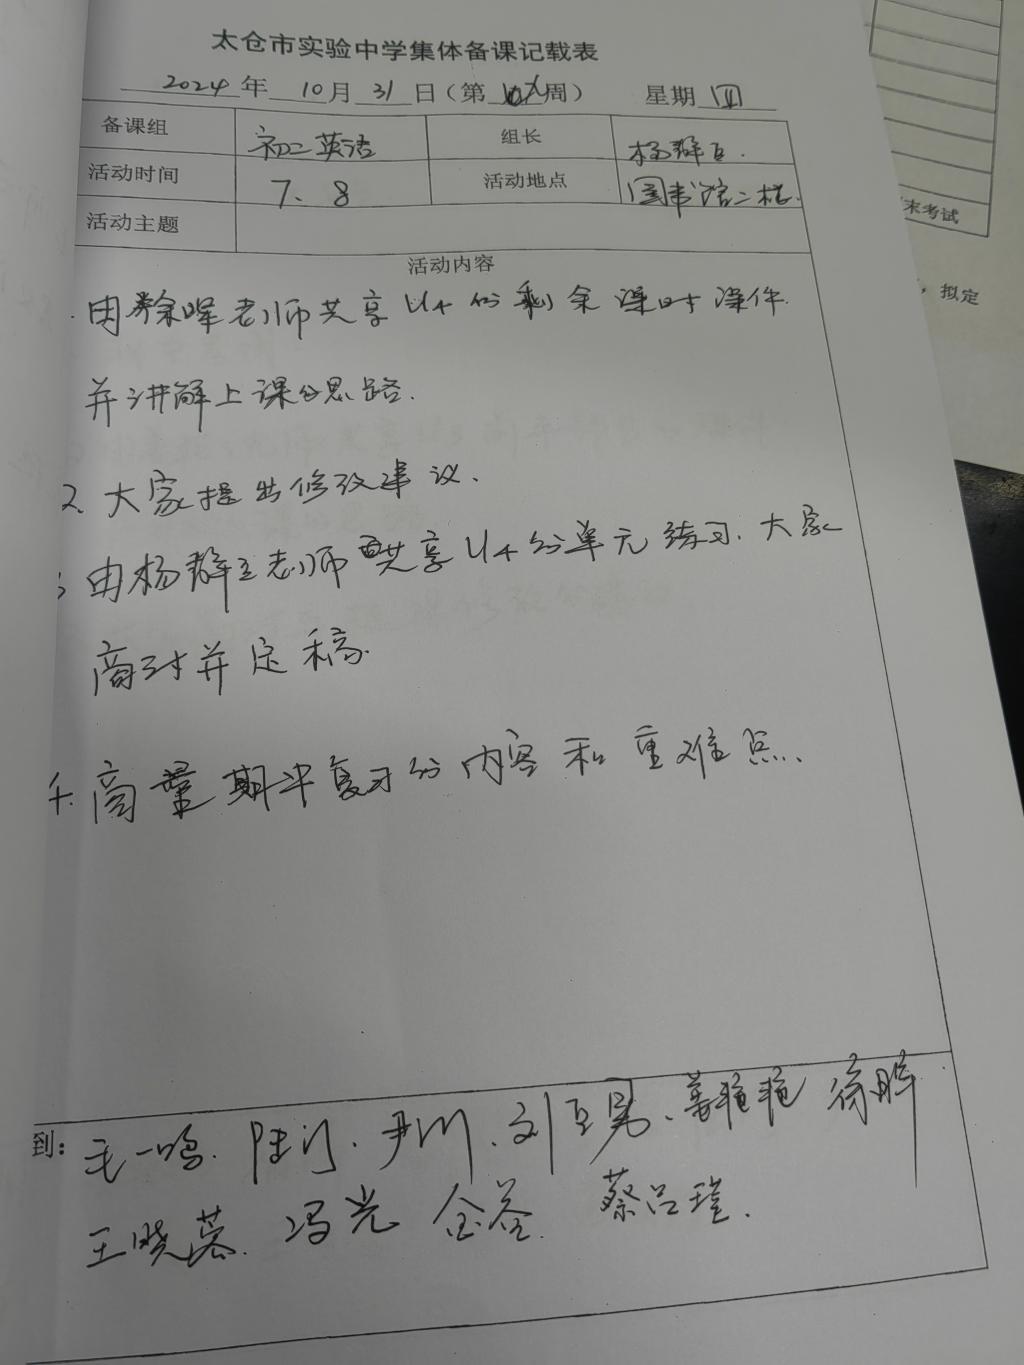 太仓市实验中学集体备课记载表
2024年 10月 31日（第 周） 星期 四
备课组 初二英语 组长 杨群
活动时间 7、8 活动地点 图书馆二楼.
活动主题
活动内容
由徐晖老师共享U4的剩余课时课件.
并讲解上课的思路.
2. 大家提出修改建议.
由杨群 老师共享U4的单元练习. 大家
商讨并定稿.
4. 商量期中复习的内容和重难点.
到: 毛一鸣. 陆 . 尹川. 刘 . 姜艳艳 徐晖
王晓慕. 冯光 金 . 蔡吕 .
末考试
, 拟定